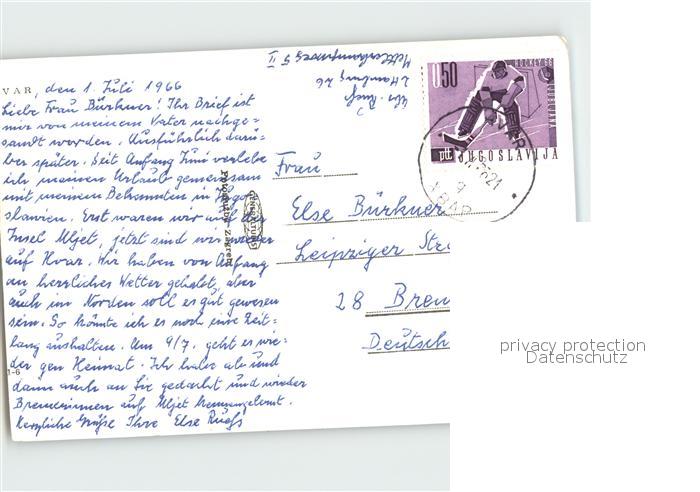 VAR, den 1. Juli 1966
Liebe Frau Bürkner! Ihr Brief ist
mir von meinem Vater nachge-
sandt worden. Ausführlich darü-
ber später. Seit Anfang Juni verlebe
ich meinen Urlaub gemeinsam
mit meinen Bekannten in Jugo-
slawien. Erst waren wir auf der
Insel Mljet, jetzt sind wir wieder
auf Hvar. Wir haben von Anfang
an herrliches Wetter gehabt, aber
auch im Norden soll es gut gewesen
sein. So könnte ich es noch eine Zeit-
lang aushalten. Um 9/7. geht es wie-
der gen Heimat. Ich habe ab und
dann auch an Sie gedacht und wieder
Bremerinnen auf Mljet kennengelernt.
Herzliche Grüße Ihre Else Ruefs
1-6
2 Hamburg 26
II
Frau
Else Bürkner
Leipziger Str
28 Brem
Deutsch
0,50
HOCKEY 66
JUGOSLAVIJA
ptt
HVAR
privacy protection
Datenschutz